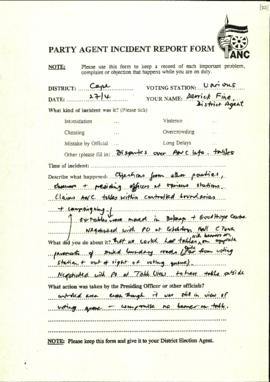 PARTY AGENT INCIDENT REPORT FORM
ANC
NOTE: Please use this form to keep a record of each important problem, complaint or objection that happens while you are on duty.
DISTRICT: Cape VOTING STATION: Various
DATE: 27/4 YOUR NAME: Derrick Fine, District Agent
What kind of incident was it? (Please tick)
Intimidation ... Violence
Cheating ... Overcrowding
Mistake by Official ... Long Delays
Other (please fill in) Disputes over ANC info. tables
Time of incident:
Describe what happened: Objections from other parties,
observers + presiding officers at various stations.
Claims ANC tables within controlled boundaries
+ campaigning
so tables were moved in
negotiated with PO at Hall
What did you do about it? that we could have tables, on opposite
pavements of voting boundary roads from voting
station, + out of sight of voting queue)
Negotiated with PO at Table View to have table outside
What action was taken by the Presiding Officer or other officials?
controlled area even though it was still in view of
voting queue - compromise no banner on table.
NOTE: Please keep this form and give it to your District Election Agent.